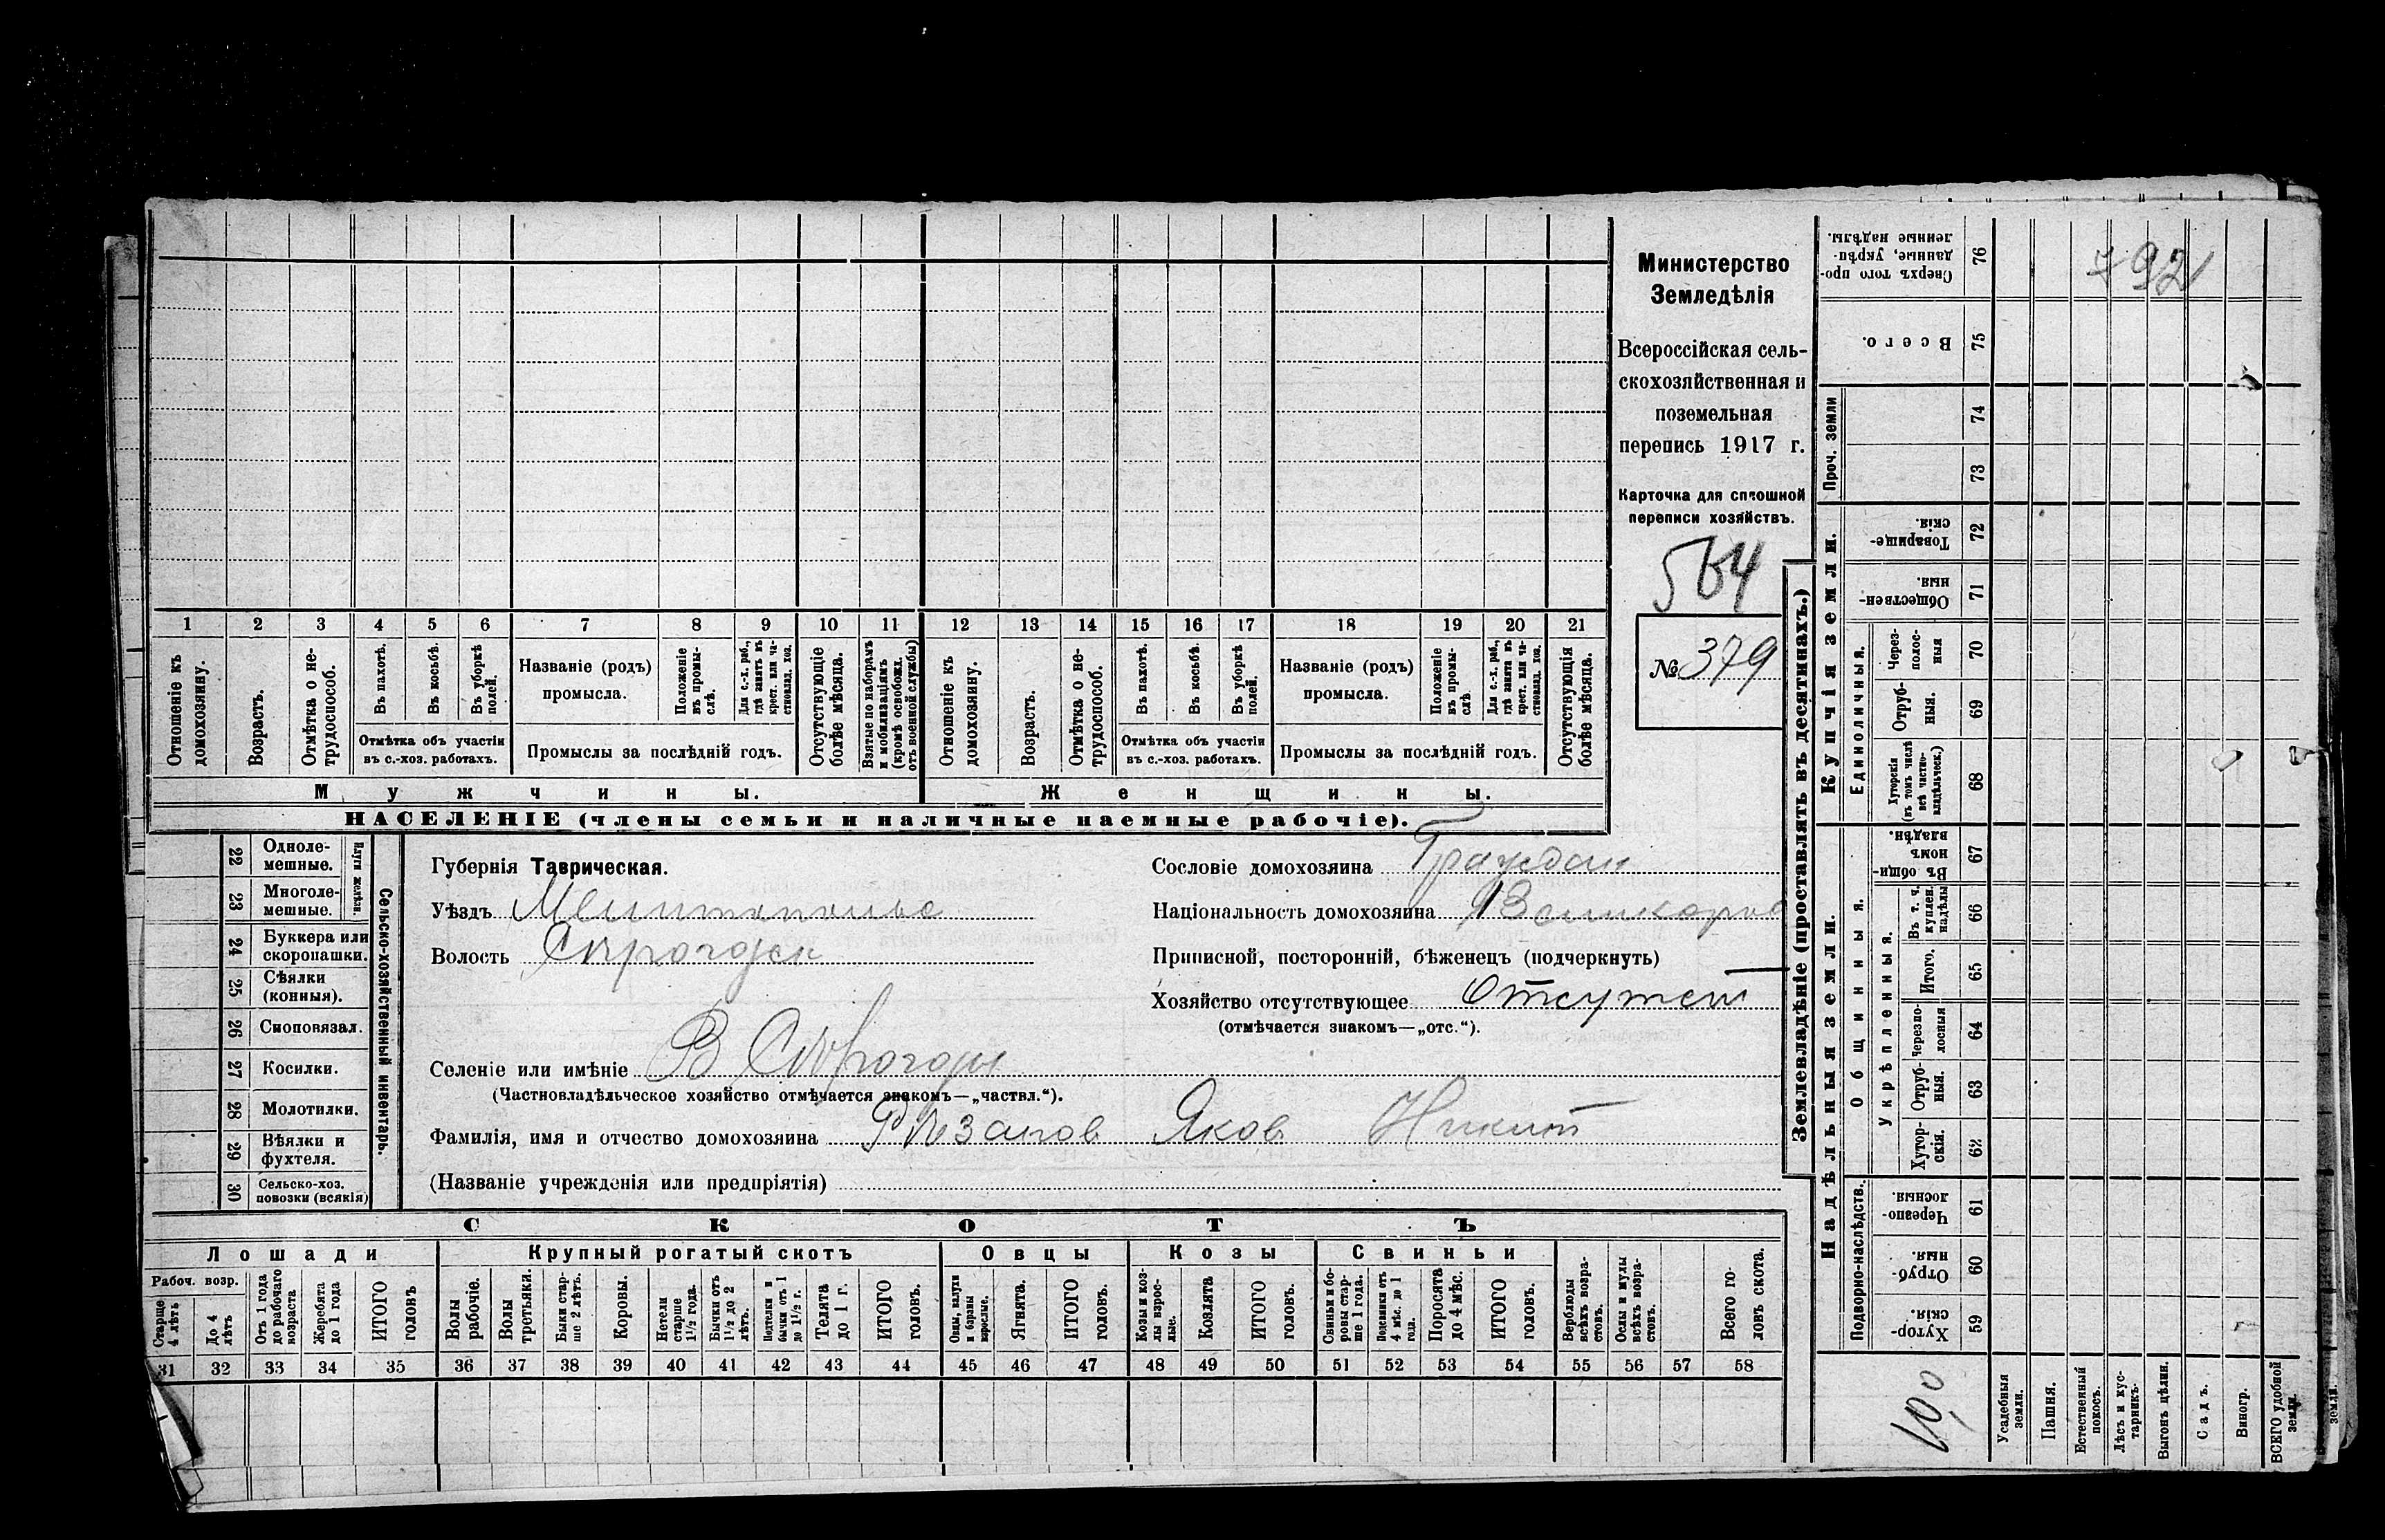 Министерство
Земледѣлія
Всероссійская сель-
скохозяйственная и
поземельная
перепись 1917 г.
Карточка для сплошной
переписи хозяйствъ.
564
№ 379
1 2 3 4 5 6 7 8 9 10 11 12 13 14 15 16 17 18 19 20 21
Отношеніе къ домохозяину.
Возрастъ.
Отмѣтка о не-трудоспособ.
Въ пахотѣ.
Въ косьбѣ.
Въ уборкѣ полей.
Отмѣтка объ участіи
въ с.-хоз. работахъ.
Названіе (родъ)
промысла.
Положеніе въ промы-слѣ.
Для с.-х. раб., гдѣ занятъ въ крест. или ча-стновлад. хоз.
Промыслы за послѣдній годъ.
Отсутствующіе болѣе мѣсяца.
Взятые по наборамъ и мобилизаціямъ (кромѣ освобожд. отъ военной службы)
Отношеніе къ домохозяину.
Возрастъ.
Отмѣтка о не-трудоспособ.
Въ пахотѣ.
Въ косьбѣ.
Въ уборкѣ полей.
Отмѣтка объ участіи
въ с.-хоз. работахъ.
Названіе (родъ)
промысла.
Положеніе въ промы-слѣ
Для с.-х. раб., гдѣ занята въ крест. или ча-стновлад. хоз.
Промыслы за послѣдній годъ.
Отсутствующія болѣе мѣсяца.
Мужчины.
Женщины.
НАСЕЛЕНІЕ (члены семьи и наличные наемные рабочіе).
22 Одноле-мешные.
23 Многоле-мешные.
Плуги желѣзн.
24 Буккера или скоропашки.
25 Сѣялки (конныя).
26 Сноповязал.
27 Косилки.
28 Молотилки.
29 Вѣялки и фухтеля.
30 Сельско-хоз. повозки (всякія)
Сельско-хозяйственный инвентарь.
Губернія Таврическая.
Уѣздъ
Волость
Селеніе или имѣніе В
(Частновладѣльческое хозяйство отмѣчается знакомъ—„частвл.“).
Фамилія, имя и отчество домохозяина Рязанов Яков Никит
(Названіе учрежденія или предпріятія)
Сословіе домохозяина Граждан
Національность домохозяина
Приписной, посторонній, бѣженецъ (подчеркнуть)
Хозяйство отсутствующее Отсутст
(отмѣчается знакомъ—„отс.“).
СКОТЪ
Лошади
Крупный рогатый скотъ
Овцы
Козы
Свиньи
Рабоч. возр.
Старше 4 лѣтъ
До 4 лѣтъ
Отъ 1 года до рабочаго возраста
Жеребята до 1 года
ИТОГО головъ
Волы рабочіе.
Волы третьяки.
Быки стар-ше 2 лѣтъ.
Коровы.
Нетели старше 1½ года.
Бычки отъ 1½ до 2 лѣтъ.
Нетелки и бычки отъ 1 до 1½ г.
Телята до 1 г.
ИТОГО головъ.
Овцы, валухи и бараны взрослые.
Ягнята.
ИТОГО головъ.
Козы и коз-лы взрос-лые.
Козлята
ИТОГО головъ.
Свиньи и бо-ровы стар-ше 1 года.
Подсвинки отъ 4 мѣс. до 1 года.
Поросята до 4 мѣс.
ИТОГО головъ.
Верблюды всѣхъ возра-стовъ.
Ослы и мулы всѣхъ возра-стовъ.
Всего го-ловъ скота.
31 32 33 34 35 36 37 38 39 40 41 42 43 44 45 46 47 48 49 50 51 52 53 54 55 56 57 58
Землевладѣніе (проставлять въ десятинахъ.)
Купчія земли.
Надѣльныя земли.
792
76 Сверхъ того про-данные, укрѣп-ленные надѣлы.
75 Всего.
Проч. земли
74
73
72 Товарище-скія.
71 Обществен-ныя.
Единоличныя.
70 Через-полос-ныя
69 Отруб-ныя.
68 Хуторскія (въ томъ числѣ всѣ частно-владѣльческ.)
Общинныя.
67 Въ общи-номъ владѣн.
Укрѣпленныя.
66 Въ т. ч. куплен. надѣлы
65 Итого.
64 Черезпо-лосныя
63 Отруб-ныя.
62 Хутор-скія.
Подворно-наслѣдств.
61 Черезпо-лосныя.
60 Отруб-ныя.
59 Хутор-скія.
Усадебныя земли.
Пашня.
Естественный покосъ.
Лѣсъ и кус-тарникъ.
Выгонъ цѣлин.
Садъ.
Виногр.
ВСЕГО удобной земли.
земли.